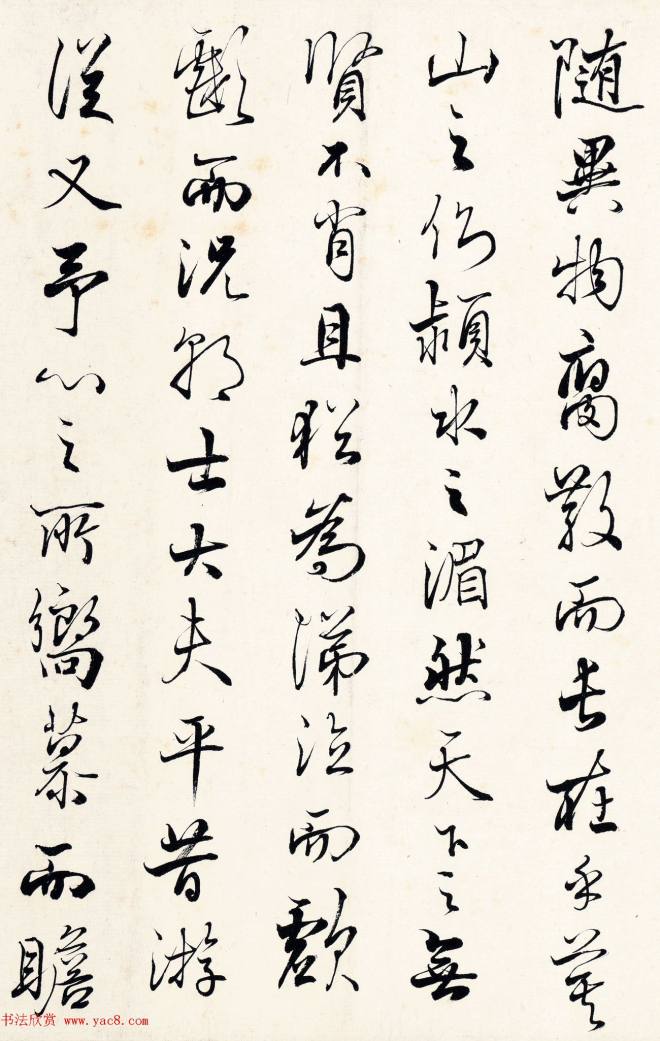 随異物腐散而長在乎箕
山之側潁水之湄然天下之無
賢不肖且猶為涕泣而歔
欷而況朝士大夫平昔游
從又予心之所嚮慕而瞻
书法欣赏 www.yac8.com